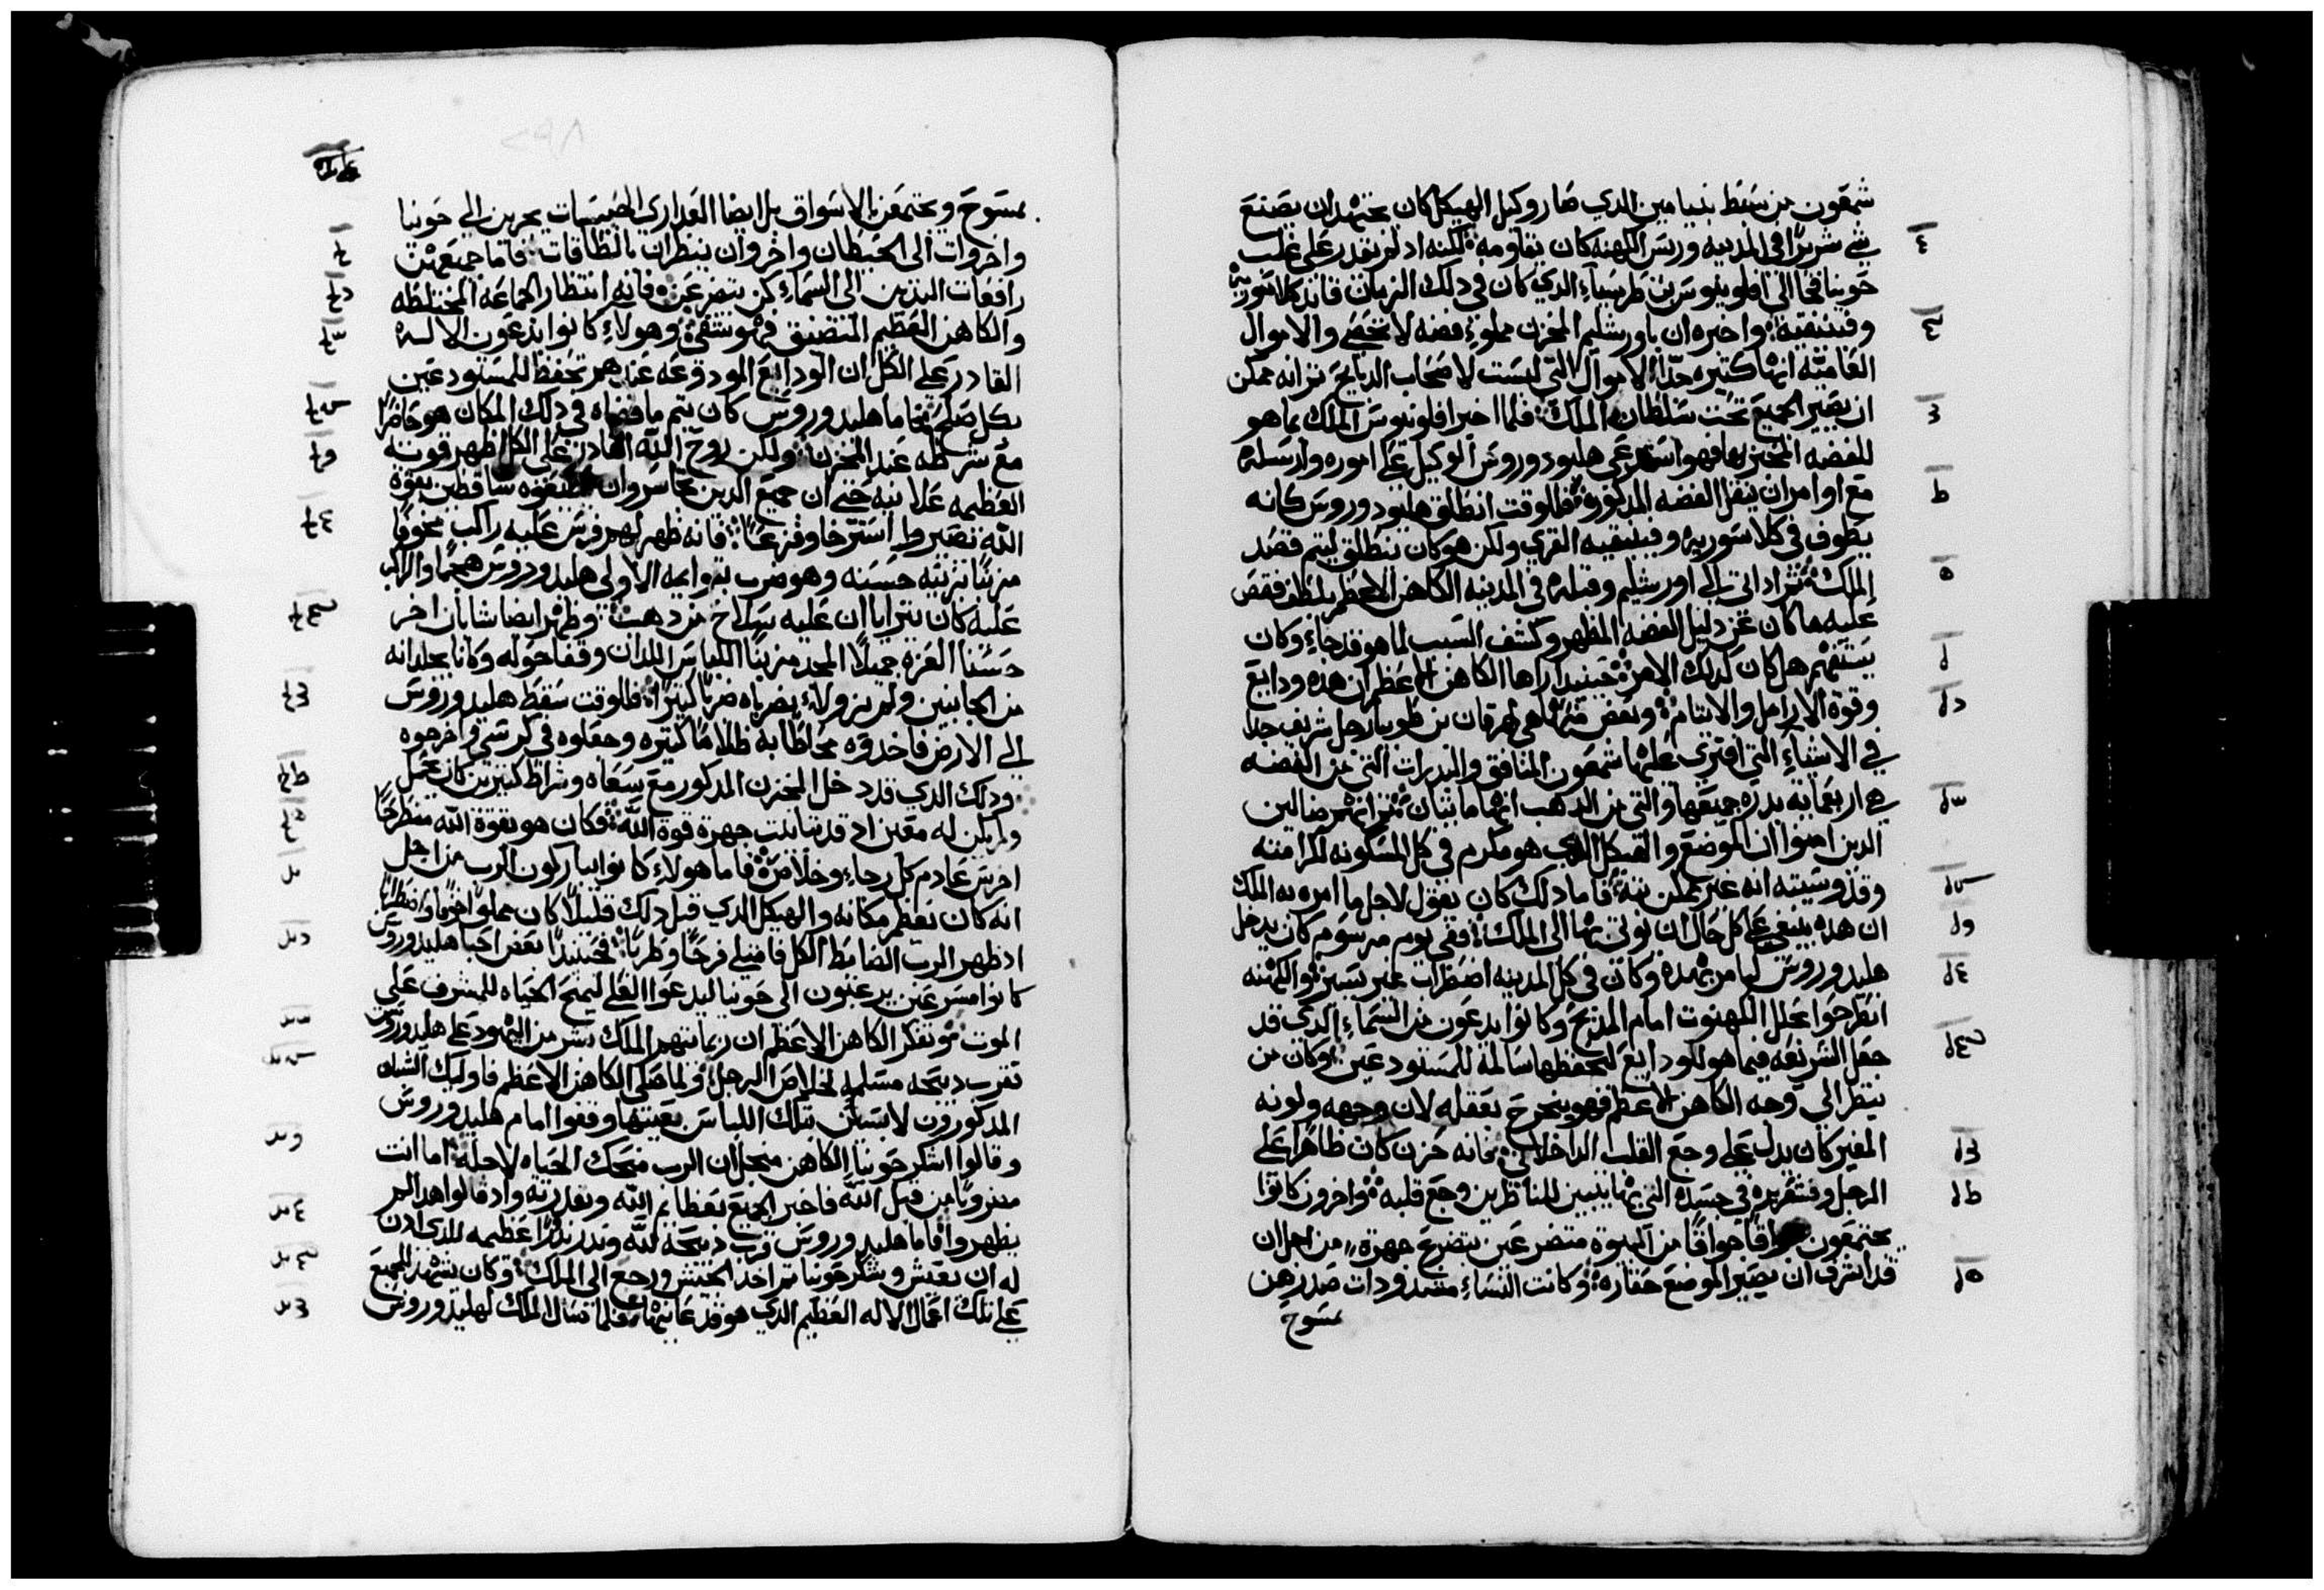 شمعون من سقط بنيامين الدي صار وكيل الهيكل كان يجتهد ان يصنع
شي شريرا في المدينه وريس الكهنه كان يقاومه لكنه اد لم يقدر على غلب
حونيا فجا الى افلونيوس بن طرسيا الدي كان في دلك الزمان قايد كلاسوريا
وفينيقيه واخبره ان باورشليم المخزن مملو فضه لا تحصى والاموال
العاميه انها كتيره جدا الاموال التي ليست لاصحاب الدبايح ثم انه ممكن
ان يصير الجميع تحت سلطان الملك فلما اخبر افلونيوس الملك بما هو
للفضه المخبر بها فهو استدعى هليودوروس الوكيل على اموره وارسله
مع اوامر ان ينقل الفضه المدكوره فللوقت انطلق هليودوروس كانه
يطوف في كلاسوريه وفينيقيه القرى ولكن هو كان ينطلق ليتم قصد
الملك ثم اد اتى الى اورشليم وقبله في المدينه الكاهن الاعظم بلطف فقص
عليه ما كان عن دليل الفضه المظهر وكشف السبب لما هو قد جا وكان
يستفهم هل كان كدلك الامر حينيد اراها الكاهن الاعظم ان هده ودايع
وقوة الارامل والايتام وبعض منها هي لهرقان بن طوبيا رجل شريف جدا
في الاشياء التي افترى عليها شمعون المنافق والبدرات التي من الفضه
هي اربعمايه بدره جميعها والتي من الدهب انها مايتان ثم انهم ضالين
الدين امنوا ان الموضع والهيكل الدي هو مكرم في كل المسكونه لكرامته
وقدوسيته انه غير ممكن بته فاما دلك كان يقول لاجل ما امره به الملك
ان هده ينبغي على كل حال ان نوتى بها الى الملك ففي يوم مرسوم كان يدخل
هليدوروس ليامر بهده وكان في كل المدينه اضطراب غير يسير والكهنه
انطرحوا بحلل الكهنوت امام المدبح وكانوا يدعون من السماء الدي قد
جعل الشريعه فيما هو للودايع لتحفظها سالمة للمستودعين وكان من
ينظر الى وجه الكاهن الاعظم فهو ينجرح بعقله لان وجهه ولونه
المغير كان يدل على وجع القلب الداخلاني فانه حزن كان ظاهرا على
الرجل وقشعريره في جسده التي بها يتبين للناظرين وجع قلبه واخرون كانوا
يجتمعون افواقا من البيوت متضرعين بتضرع جهرة من اجل ان
قد اشرف ان يصير الموضع حقاره وكانت النساء مشدودات صدرهن
بمسوح
بمسوح ويجتمعن بالاسواق بل ايضا العداري الحبيسات يجرين الى حونيا
واخروات الى الحيطان واخر وان ينظران بالطاقات فاما جميعهن
رافعات اليدين الى السماء كن يتضرعن فانه انتظار الجماعه المختلطه
والكاهن العظيم المتضيق وهولاء كانوا يدعون الاله
القادر على الكل ان الودايع المودوعه عندهم تحفظ للمستودعين
بكل صلح فاما هليدوروس كان يتم ما قضاه في دلك المكان هو حاضرا
مع شرطه عند المخزن ولكن روح الله القادر على الكل اظهر قوته
العظيمه علانيه حتى ان جميع الدين تجاسروا ان يطيعوه ساقطين بقوة
الله تصيروا استرخا وفزعا فانه ظهر لهم فرس عليه راكب مخوفا
مزينا بزينه حسنه وهو ضرب بقوايمه الاولى هليدودروس هجما والراكب
عليه كان يترايا ان عليه سلاح من دهب وظهر ايضا شابان اخر
حسنا العزه جميلا المجد مزينا اللباس اللدان وقفا حوله وكانا يجلدانه
من الجانبين ولم يزولا يضرباه ضربا كتيرا فللوقت سقط هليدوروس
الى الارض فاخدوه محاطا به ظلاما كتيره وجعلوه في كرسي واخرجوه
ودلك الدي قد دخل المخزن المدكور مع سعاه وشراط كتيرين كان يحمل
ولم يكن له معين اد قد تباينت جهرة قوة الله فكان هو بقوة الله منطرحا
اخرس عادم كل رجاء وخلاص فاما هولاء كانوا يباركون الرب من اجل
انه كان يعظم مكانه والهيكل الدي قبل دلك قليلا كان مملوا خوفا واضطرابا
اد ظهر الرب الضابط الكل فامتلي فرحا وطربا فحينيدا بعض احبا هليدوروس
كانوا مسرعين يرغبون الى حونيا ليدعوا العلي ليمنح الحياه للمشرف على
الموت فتفكر الكاهن الاعظم ان ربما يتهم الملك بشر من اليهود على هليدوروس
تقرب دبيحه مسلميه لخلاص الرجل ولما صلى الكاهن الاعظم فاوليك الشبان
المدكورون لابسين تلك اللباس بعينها وقفوا امام هليدوروس
وقالوا اشكر حونيا الكاهن من اجل ان الرب منحك الحياه لاجله اما انت
مضروبا من قبل الله فاخبر الجميع بعظايم الله وبقدرته واد قالوا هدا لم
يظهروا فاما هليدوروس قرب دبيحه لله وندر ندورا عظيمه للدي ادن
له ان يعيش وشكر حونيا ثم اخد الجيش ورجع الى الملك وكان يشهد للجميع
على تلك اعمال الاله العظيم الدي هو قد عاينها فلما سال الملك لهليدوروس